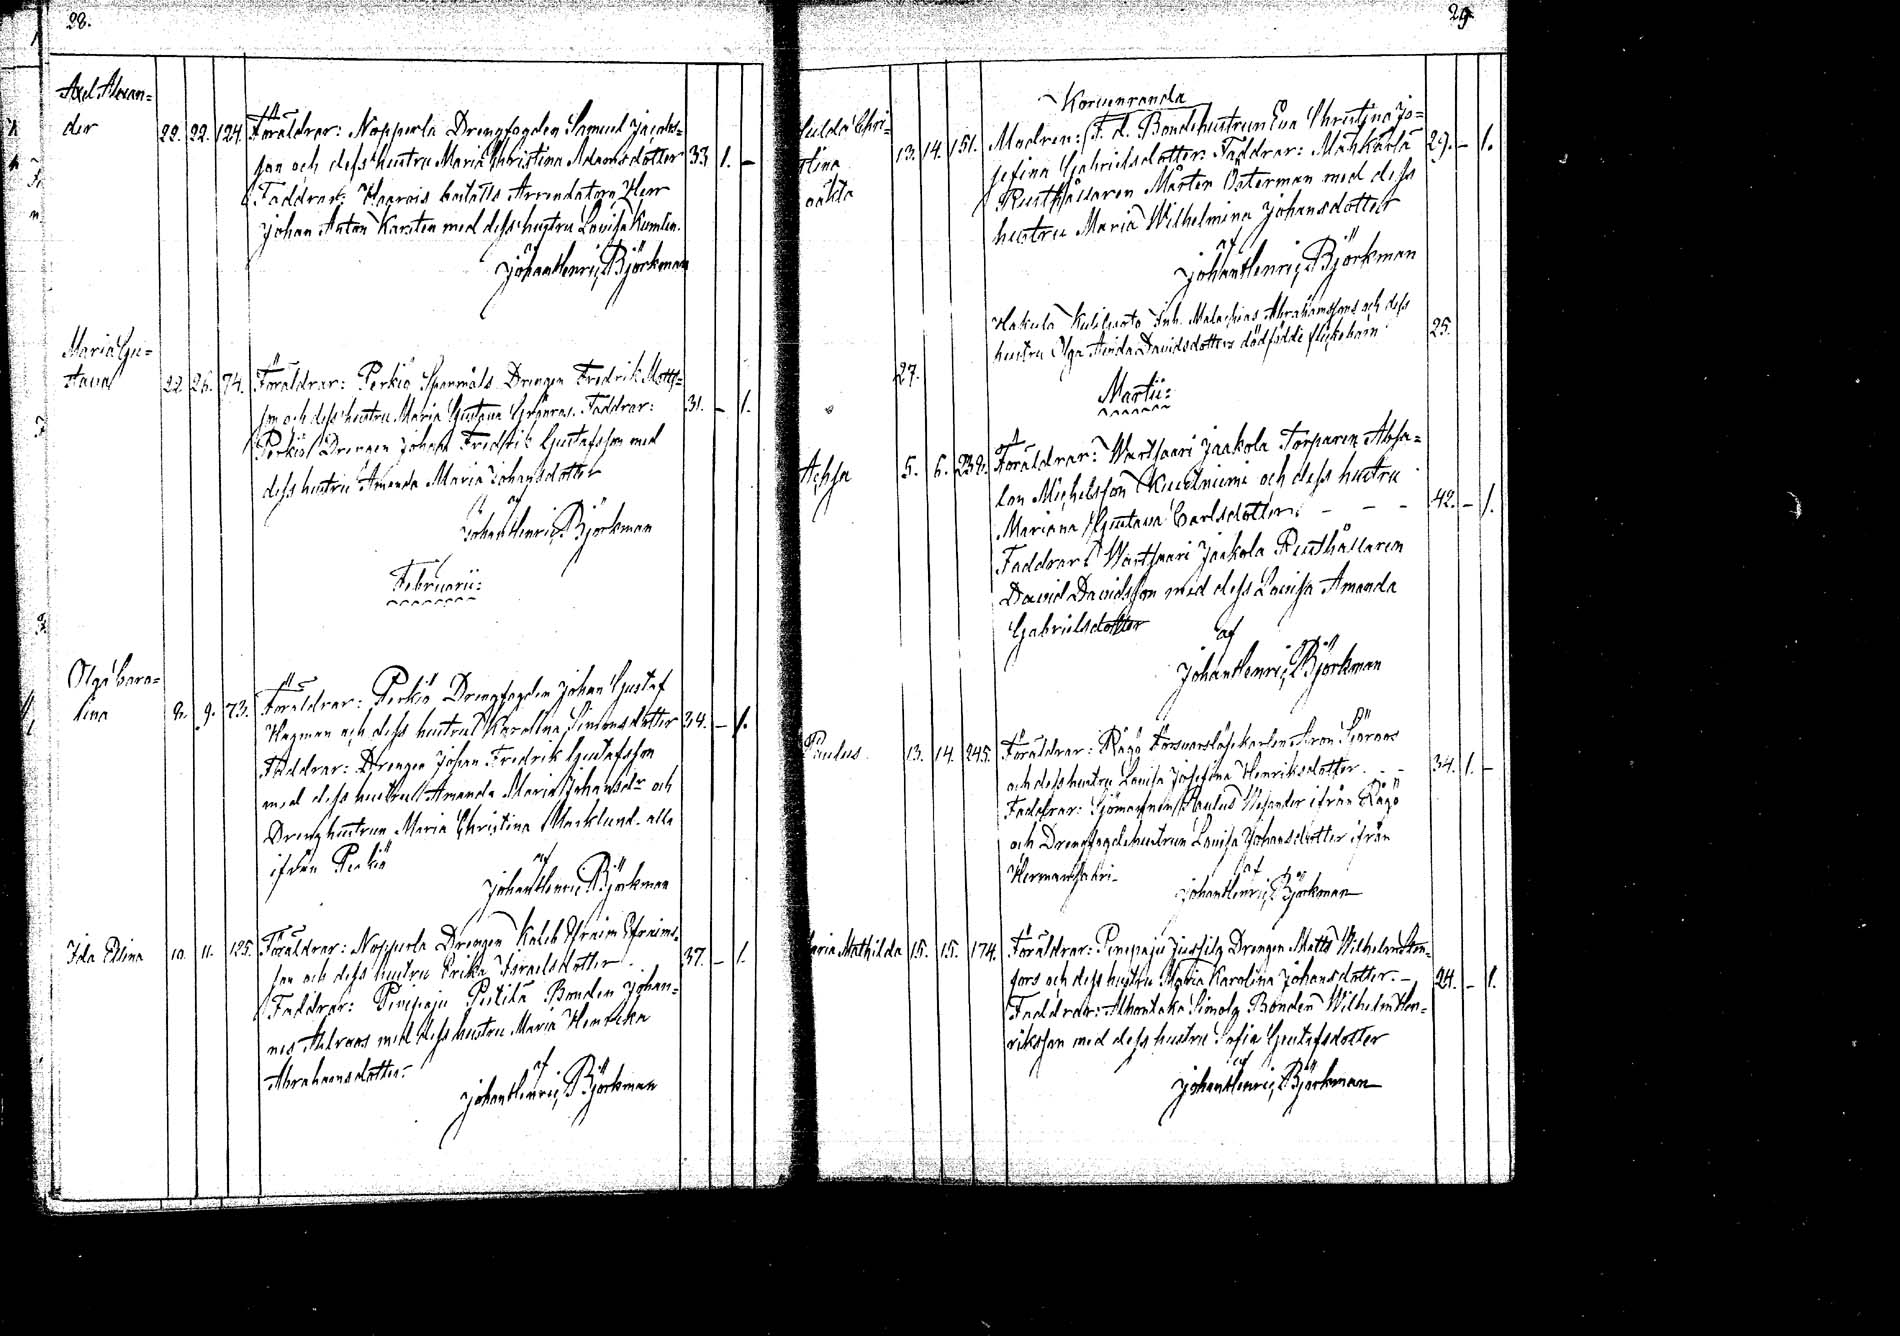 28.
Axel Alexan=
der 22. 22. 124. Föräldrar: Nopperla Drengfogden Samuel Jacobs=
son och dess hustru Maria Christina Adamsdotter 33 1. –
Faddrar: Haarois boställs Arrendatorn Herr
Johan Anton Karsten med dess hustru Lovisa Kumlin.
af
Johan Henric Björkman
Maria Gu=
stava 22 26. 74. Föräldrar: Perkiö Sparmäls Drengen Fredrik Matts=
son och dess hustru Maria Gustava Grönroos. Faddrar: 31. – 1.
Perkiö Drengen Johan Fredrik Gustafsson med
dess hustru Amanda Maria Johansdotter
af
Johan Henric Björkman
Februarii:
Olga Caro=
lina 8. 9. 73. Föräldrar: Perkiö Drengfogden Johan Gustaf
Hagman och dess hustru Karolina Simonsdotter 34. – 1.
Faddrar: Drengen Johan Fredrik Gustafsson
med dess hustru Amanda Maria Johansdr och
Drenghustrun Maria Christina Marklund. alla
ifrån Perkiö
af
Johan Henric Björkman
Ida Elina 10. 11. 125. Föräldrar: Nopperla Drengen Kaleb Efraim Efraims=
son och dess hustru Erika Israelsdotter. 37. – 1.
Faddrar: Pinipaju Bonden Johan=
nes Ahlroos med dess hustru Maria Henrika
Abrahamsdotter.
af
Johan Henric Björkman
29
Korvenranda
Hulda Chri=
stina 13. 14. 151. Modren: F. d. Bondehustrun Eva Christina Jo= 29. – 1.
oäkta sefina Gabrielsdotter Faddrar:
Rusthållaren Mårten Österman med dess
hustru Maria Wilhelmina Johansdotter
af
Johan Henric Björkman
Hakula Inh. Malachias Abrahamssons och dess
hustru Olga Davidsdotters dödfödde flickebarn 25.
27.
Martii:
Achsa 5. 6. 232. Föräldrar: Wartsaari Jaakola Torparen Absa=
lon Michelsson Kuusniemi och dess hustru
Mariana Gustava Carlsdotter. – – – 42. – 1.
Faddrar: Wartsaari Jaakola Rusthållaren
David Davidsson med dess Lovisa Amanda
Gabrielsdotter
af
Johan Henric Björkman
Paulus. 13. 14. 245. Föräldrar: Rågö Försvarslösekarlen Aron Sjöroos
och dess hustru Lovisa Josefina Henriksdotter. – – 34. 1. –
Faddrar: Sjömannen Paulus Wesander ifrån Rågö
och Drengfogdehustrun Lovisa Johansdotter ifrån
Hermansaari
af
Johan Henric Björkman
Maria Mathilda 15. 15. 174. Föräldrar: Pinipaju Jussila Drengen Matts Wilhelm Sten=
fors och dess hustru Maria Karolina Johansdotter. – 24. – 1.
Faddrar: Simola Bonden Wilhelm Hen=
riksson med dess hustru Sofia Gustafsdotter
af
Johan Henric Björkman